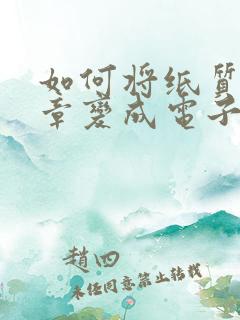 如何将纸质
章变成电子
趙四
未经同意禁止转载